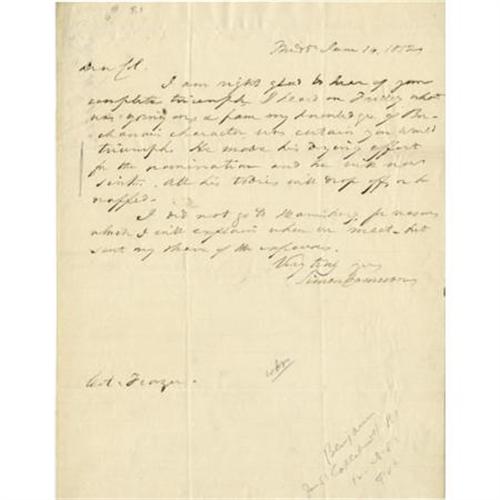 June 14, 1852
Dear Col.
I am right glad to hear of your
complete triumph. I heard on Friday what
was going on & from my knowledge of Bu-
chanan's character was certain you would
triumph. He made his dying effort
for the nomination and he will now
sink. All his tories will drop off or be
I did not go to for reasons
which I will explain when we meet - but
sent my share of the expenses.
Very truly yours
Simon Cameron
Col. Frazer.
Benjamin